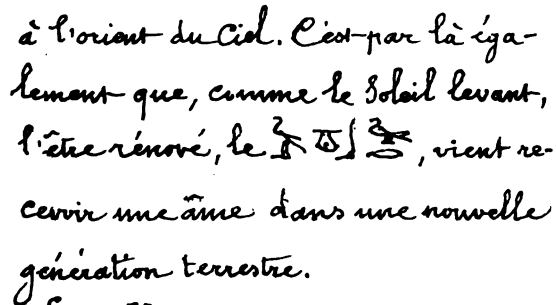 à l'orient du Ciel. C'est par là éga-
lement que, comme le Soleil levant,
l'être rénové, le , vient re-
cevoir une âme dans une nouvelle
génération terrestre.